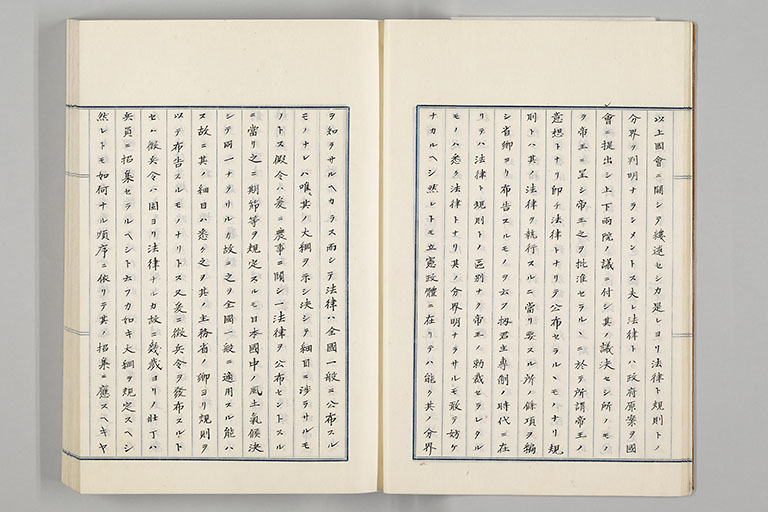 以上國會ニ關シテ縷述セシカ是レヨリ法律ト規則トノ
分界ヲ判明ナラシメントス夫レ法律トハ政府原案ヲ國
會ニ提出シ上下兩院ノ議ニ付シ其ノ議決セシ所ノモノ
ヲ帝王ニ呈シ帝王之ヲ批准セラルヽニ於テ所謂帝王ノ
意想トナリ即チ法律トナリテ公布セラルヽモノナリ規
則トハ其ノ法律ヲ執行スルニ當リ要スル所ノ條項ヲ編
シ省卿ヨリ布告スルモノヲ云フ扨君主專制ノ時代ニ在
リテハ法律ト規則トノ區別ナク帝王ノ勅裁セラレタル
モノハ悉ク法律トナリ其ノ分界明ナラサルモ敢テ妨ケ
ナカルヘシ然レトモ立憲政體ニ在リテハ能ク其ノ分界
ヲ知ラサルヘカラス而シテ法律ハ全國一般ニ公布スル
モノナレハ唯其ノ大綱ヲ示シ決シテ細目ニ涉ラサルモ
ノトス假令ハ爰ニ農事ニ關シ一法律ヲ公布セントスル
ニ當リ之ニ期節等ヲ規定スルモ日本國中ノ風土氣候決
シテ同一ナラサルカ故ニ之ヲ全國一般ニ適用スル能ハ
ス故ニ其ノ細目ハ悉ク之ヲ其ノ主務省ノ卿ヨリ規則ヲ
以テ布告スルモノナリトス又爰ニ徵兵令ヲ發布スルト
セハ徵兵令ハ固ヨリ法律ナルカ故ニ幾歲ヨリノ壯丁ハ
兵員ニ招集セラルヘシト云フカ如キ大綱ヲ規定スヘシ
然レトモ如何ナル順序ニ依リテ其ノ招集ニ應スヘキヤ